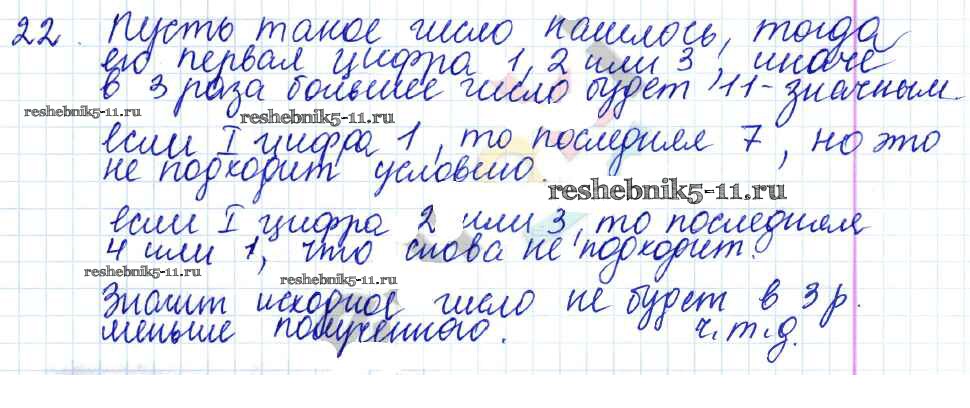 22. Пусть такое число нашлось, тогда
его первая цифра 1, 2 или 3, иначе
в 3 раза большее число будет 11-значным
reshebnik5-11.ru
reshebnik5-11.ru
если I цифра 1, то последняя 7, но это
не подходит условию.
reshebnik5-11.ru
если I цифра 2 или 3, то последняя
4 или 1, что снова не подходит.
reshebnik5-11.ru
reshebnik5-11.ru
Значит исходное число не будет в 3 р.
меньше полученного. ч.т.д.